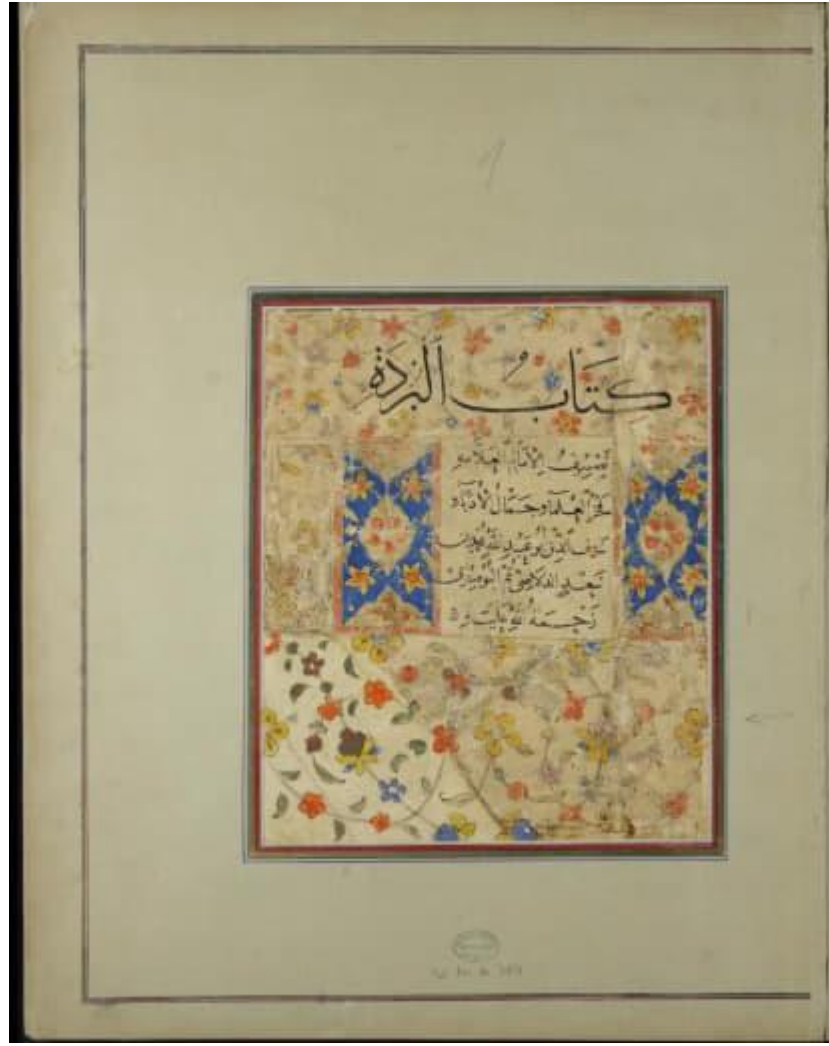 كِتَابُ الْبُرْدَة
تصنيف الإمام العلامه
فخر العلماء وجمال الأدباء
شرف الدين أبو عبد الله محمد بن
سعيد الدلاصي ثم البوصيري
رحمه الله